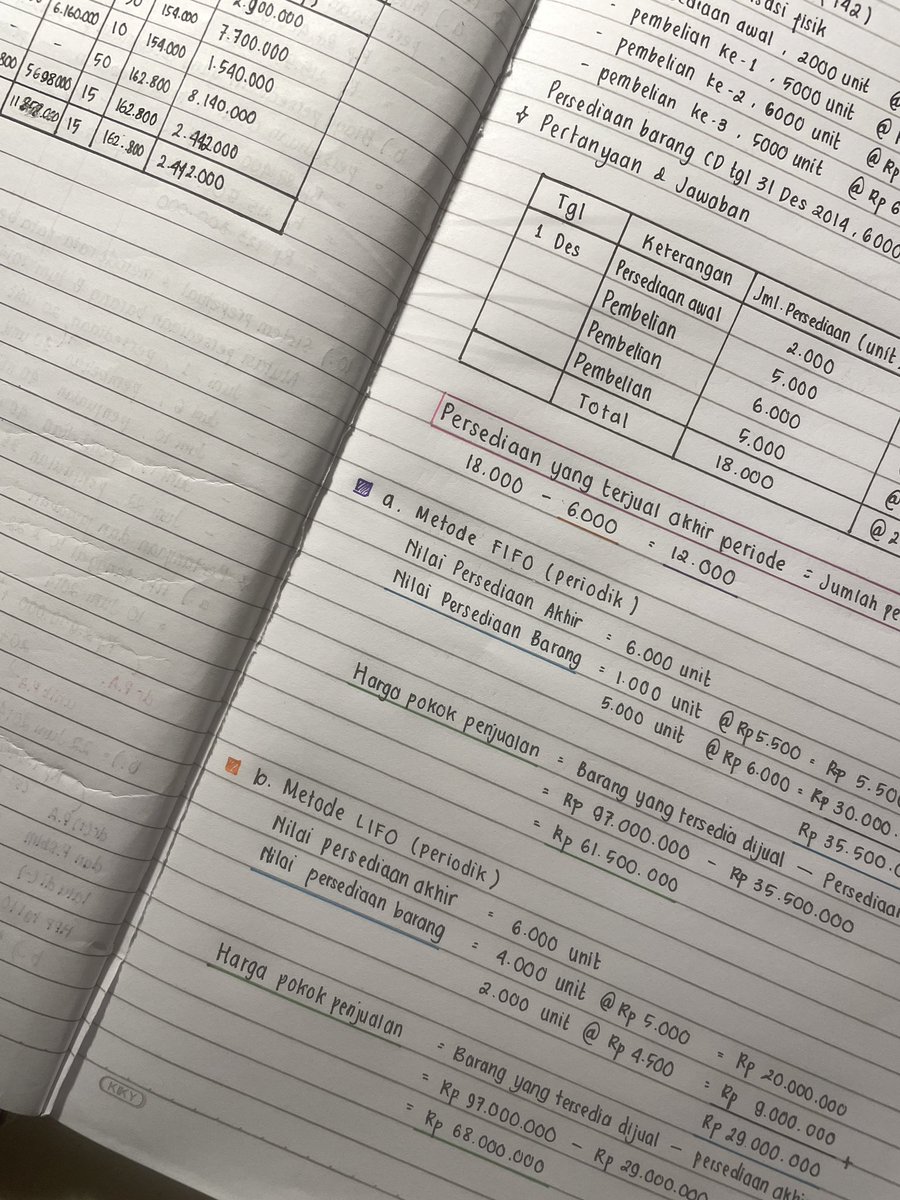 6.160.000 154.000 2.900.000
10 154.000 7.700.000
- 50 162.800 1.540.000
800 5698.000 15 162.800 8.140.000
15 162.800 2.442.000
2.442.000
142)
fisik
awal, 2000 unit @
- pembelian ke-1, 5000 unit @ Rp
- pembelian ke-2, 6000 unit @ Rp
- pembelian ke-3, 5000 unit @ Rp 6
Persediaan barang CD tgl 31 Des 2014, 6000
Pertanyaan & Jawaban
Tgl Keterangan Jml. Persediaan (unit
1 Des Persediaan awal 2.000
Pembelian 5.000
Pembelian 6.000
Pembelian 5.000 @
Total 18.000 @ 2
Persediaan yang terjual akhir periode = Jumlah pe
18.000 - 6.000 = 12.000
a. Metode FIFO (periodik)
Nilai Persediaan Akhir = 6.000 unit
Nilai Persediaan Barang = 1.000 unit @ Rp 5.500 = Rp 5.500
5.000 unit @ Rp 6.000 = Rp 30.000.
Rp 35.500.0
Harga pokok penjualan = Barang yang tersedia dijual - Persediaan
= Rp 97.000.000 - Rp 35.500.000
= Rp 61.500.000
b. Metode LIFO (periodik)
Nilai persediaan akhir = 6.000 unit
Nilai persediaan barang = 4.000 unit @ Rp 5.000 = Rp 20.000.000
2.000 unit @ Rp 4.500 = Rp 9.000.000 +
Rp 29.000.000
Harga pokok penjualan = Barang yang tersedia dijual - persediaan akhi
= Rp 97.000.000 - Rp 29.000.000
= Rp 68.000.000
KIKY